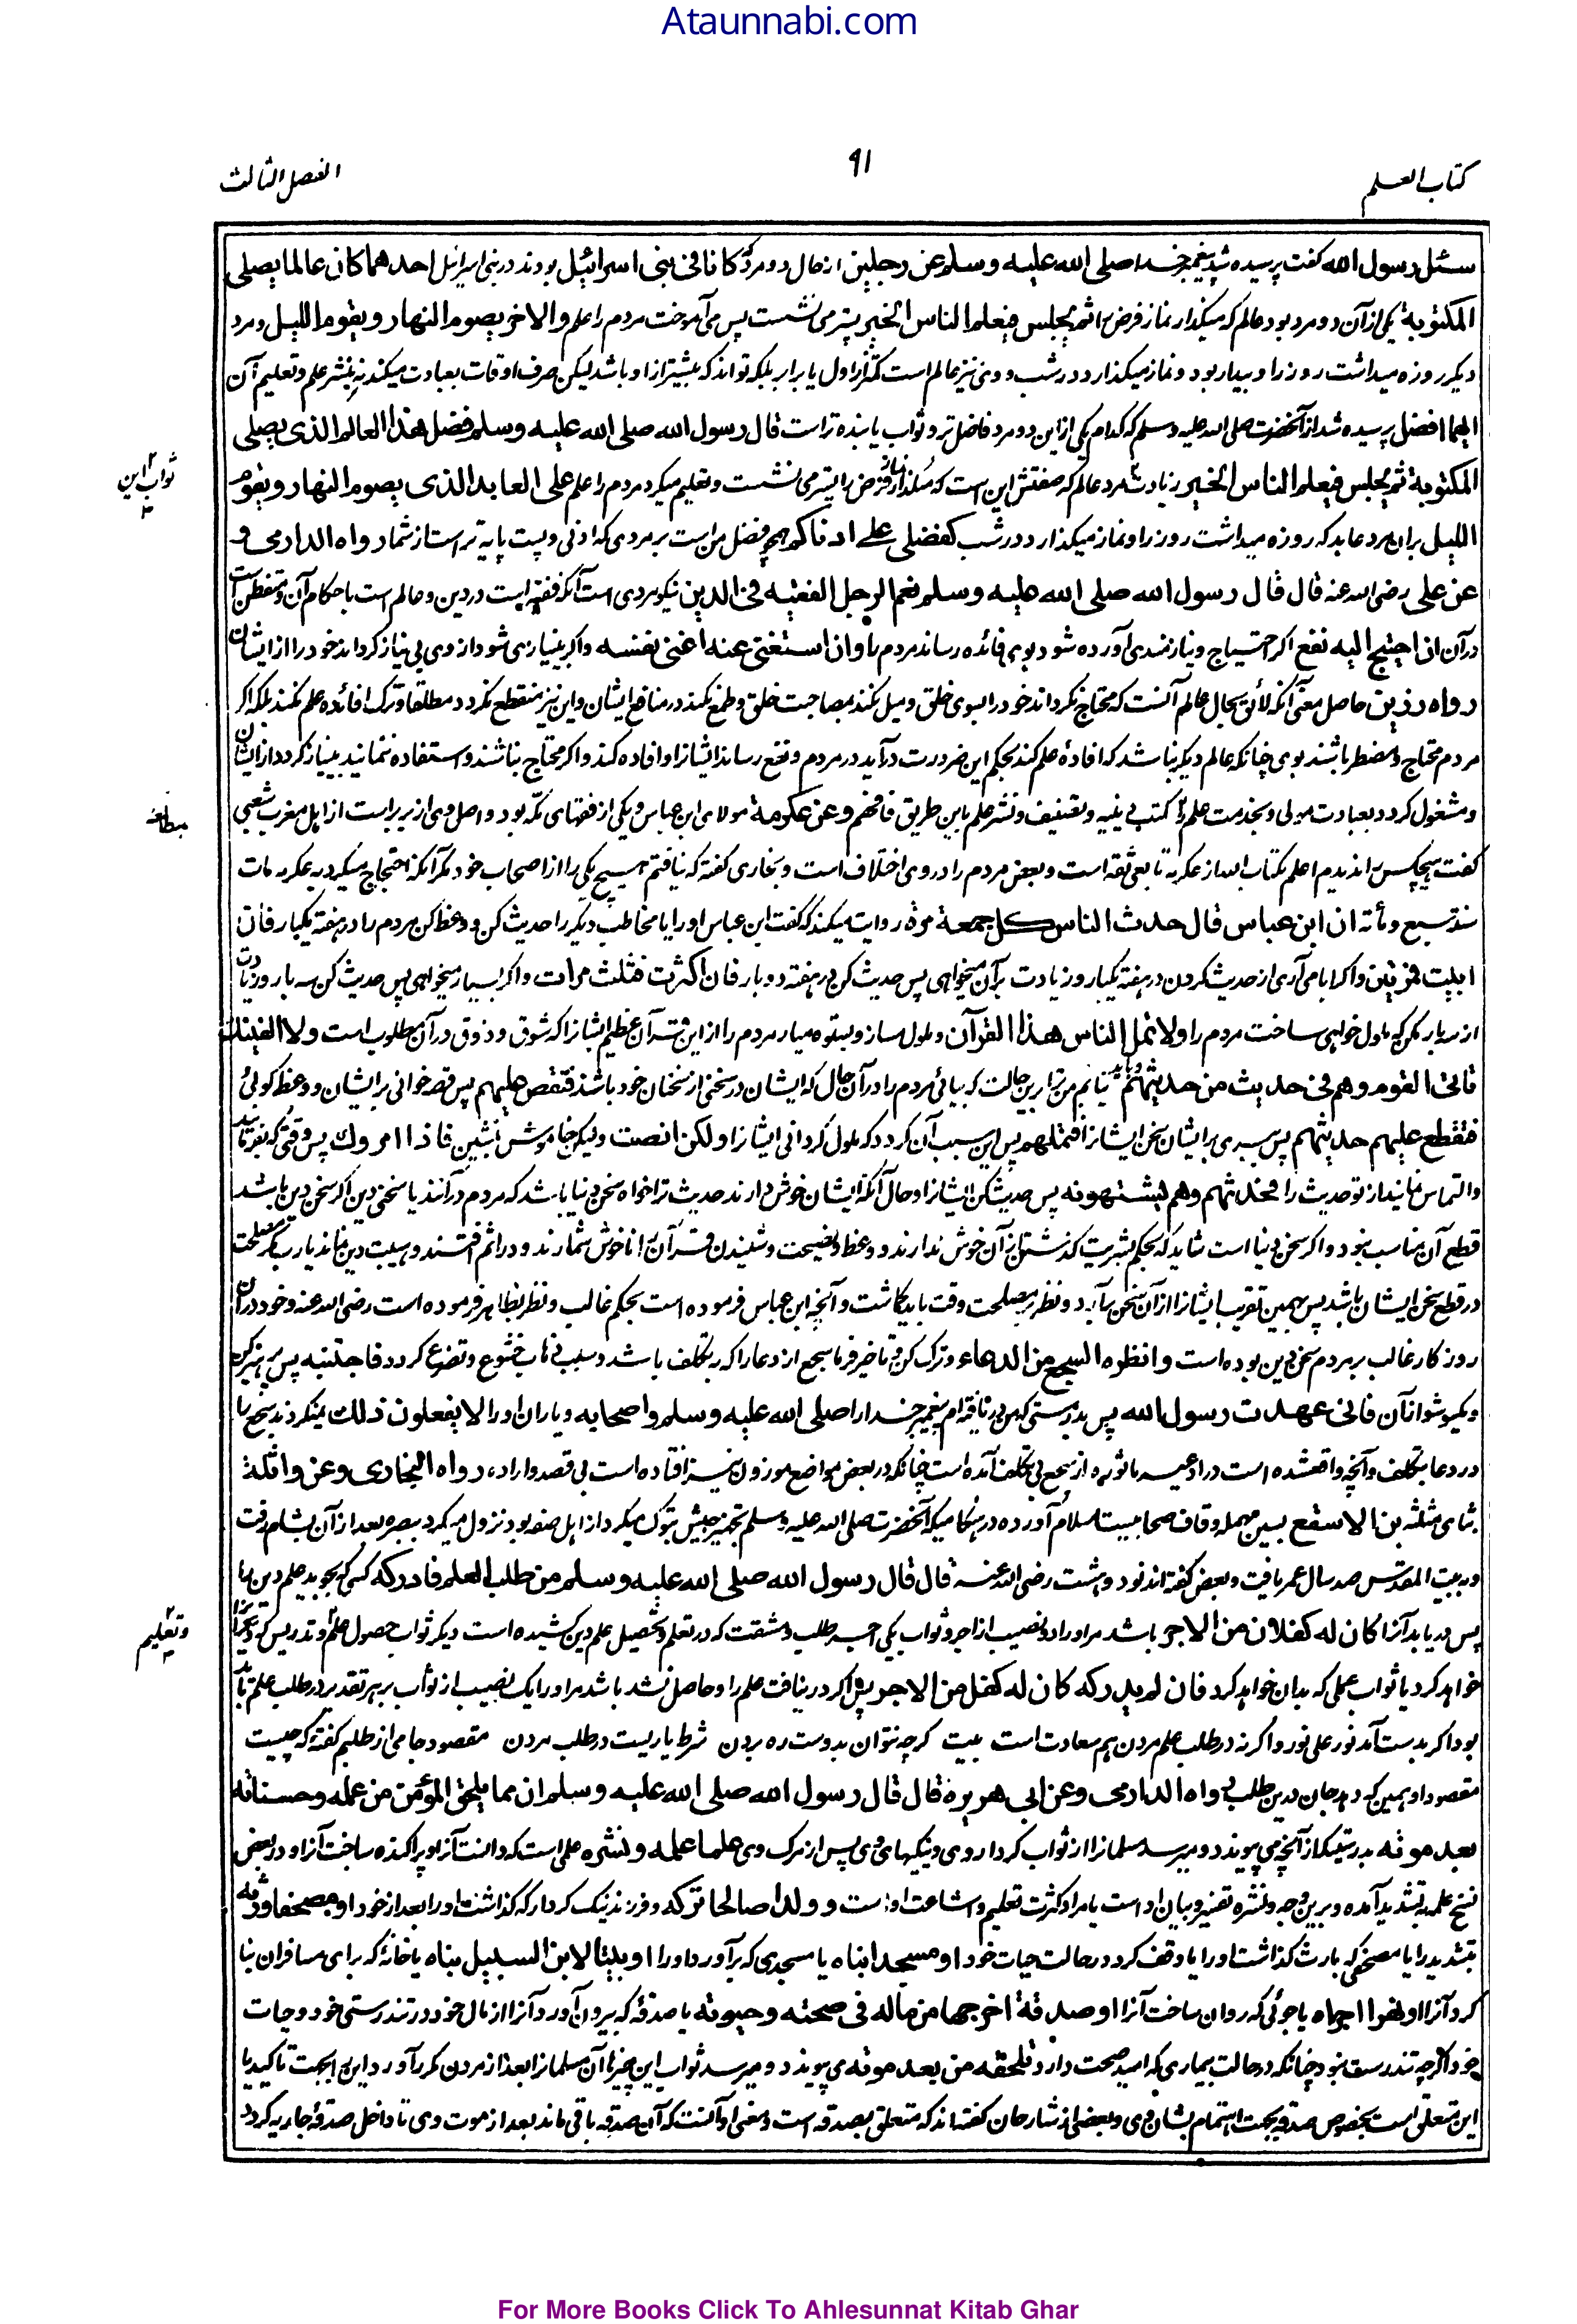 Ataunnabi.com
کتاب العلم
۹۱
الفصل الثالث
سئل رسول الله گفت پرسیده شد پیغمبر خدا صلی الله علیه وسلم عن رجلین از حال دو مرد کانا فی بنی اسرائیل بودند در بنی اسرائیل احدهما کان عالما یصلی
المکتوبة یکی از آن دو مرد بود عالم که میگذارد نماز فرض را ثم یجلس فیعلم الناس الخیر پستر می نشست پس می آموخت مردم را علم والاخر یصوم النهار ویقوم اللیل ومرد
دیگر روزه میداشت روز را و بیدار بود و نماز میگذارد در شب و وی نیز عالم است کمتر از اول یا برابر بلکه تواند که بیشتر از او باشد لیکن صرف اوقات بعبادت میکند نه بنشر علم وتعلیم آن
ایهما افضل پرسیده شد از آنحضرت صلی الله علیه وسلم که کدام یکی ازین دو مرد فاضل تر و ثواب یابنده تر است قال رسول الله صلی الله علیه وسلم فضل هذا العالم الذی یصلی
المکتوبة ثم یجلس فیعلم الناس الخیر زیادت مرد عالم که صفتش این است که میگذارد نماز فرض را پستر می نشست و تعلیم میکرد مردم را علم علی العابد الذی یصوم النهار ویقوم
ثواب این
اللیل بران مرد عابد که روزه میداشت روز را و نماز میگذارد در شب کفضلی علی ادناکم همچو فضل من است بر مردی که ادنی و پست پایه تر است از شما رواه الدارمی و
عن علی رضی الله عنه قال قال رسول الله صلی الله علیه وسلم نعم الرجل الفقیه فی الدین نیکو مردی است آنکه فقیه است در دین و عالم است باحکام آن ومتفطن است
درآن ان احتیج الیه نفع اگر احتیاج و نیازمندی آورده شود بوی فائده رساند مردم را وان استغنی عنه اغنی نفسه واگر بی نیازی شود از وی بی نیاز گرداند خود را از ایشان
رواه رزین حاصل معنی آنکه لائق بحال عالم آنست که محتاج نگرداند خود را بسوی خلق و میل نکند بمصاحبت خلق و طمع نکند در منافع ایشان و این نیز منقطع نگردد مطلقا و ترک افائده علم نکند بلکه اگر
مردم محتاج و مضطر باشند بوی چنانکه عالم دیگر نباشد که افادهٔ علم کند بحکم این ضرورت درآید در مردم و نفع رساند ایشانرا و افاده کند و اگر محتاج نباشند و استفاده ننمایند بینیاز گردد از ایشان
و مشغول گردد بعبادت مولی و بخدمت علم از کتب دینیه و تصنیف و نشر علم باین طریق فافهم وعن عکرمة مولای ابن عباس و یکی از فقهای مکه بود و اصل وی از بربر است از اهل مغرب شعبی
مطالعه
گفت هیچکس را ندیدم اعلم بکتاب الله از عکرمه تابعی ثقه است و بعض مردم را در وی اختلاف است و بخاری گفته که نیافتم هیچ یکی را از اصحاب خود مگر آنکه احتجاج میکرد به عکرمه مات
سنة سبع ومأته ان ابن عباس قال حدث الناس کل جمعة مرة روایت میکند که گفت ابن عباس او را یا مخاطب دیگر را حدیث کن و وعظ کن مردم را در هفته یکبار فان
ابیت فمرتین واگر ابا می آری از حدیث کردن در هفته یکبار و زیادت بر آن میخواهی پس حدیث کن در هفته دو بار فان اکثرت فثلث مرات واگر بسیار میخواهی پس حدیث کن سه بار و زیادت
از سه بار مکن که ملول خواهی ساخت مردم را ولا تمل الناس هذا القرآن و ملول مساز و بستوه میار مردم را از این قرآن عظیم ایشانرا که شوق و ذوق در آن مطلوب است ولا الفینک
تأتی القوم وهم فی حدیث من حدیثهم و باید نیابم من ترا برین حالت که بیائی مردم را در آن حال که ایشان در سخنی از سخنان خود باشند فتقص علیهم پس قصه خوانی بر ایشان و وعظ گوئی
فتقطع علیهم حدیثهم پس ببری بر ایشان سخن ایشانرا فتملهم پس این سبب آن گردد که ملول گردانی ایشانرا ولکن انصت ولیکن خاموش بنشین فاذا امروک پس وقتی که بفرمایند
والتماس نمایند از تو حدیث را فحدثهم وهم یشتهونه پس حدیث کن ایشانرا و حال آنکه ایشان خوش دارند حدیث ترا خواه سخن دنیا باشد که مردم درآنند یا سخن دین اگر سخن دین باشد
قطع آن مناسب نبود و اگر سخن دنیا است شاید که بحکم بشریت گذشتن از آن خوش ندارند و وعظ و نصیحت و شنیدن قرآن را ناخوش شمارند و در اثم افتند و هیبت دین نماند یا رب مگر مصلحت
در قطع سخن ایشان باشد پس بهمین تقریب ایشانرا از آن سخن برآرد و نظر بر مصلحت وقت باید گماشت و آنچه ابن عباس فرموده است بحکم غالب و نظر بظاهر فرموده است رضی الله عنه و خود در آن
روزگار غالب بر مردم سخن دین بوده است وانظر السجع من الدعاء و ترک کن و تاخیر فرما سجع از دعا را که بتکلف باشد و سبب ذهاب خشوع و تضرع گردد فاجتنبه پس پرهیز کن
و یکسو شو از آن فانی عهدت رسول الله پس بدرستی که من دریافته ام پیغمبر خدا را صلی الله علیه وسلم واصحابه و یاران او را لا یفعلون ذلک نمیکردند سجع را
در دعا بتکلف و آنچه واقع شده است در ادعیه ماثوره از سجع بی تکلف آمده است چنانکه در بعض مواضع موزون نیز افتاده است بی قصد و اراده، رواه البخاری وعن واثلة
بثای مثلثه بن الاسقع بسین مهمله و قاف صحابیست اسلام آورده در هنگامیکه آنحضرت صلی الله علیه وسلم تجهیز جیش تبوک میکرد از اهل صفه بود نزول میکرد ببصره بعد از آن بشام رفت
و به بیت المقدس صد سال عمر یافت و بعض گفته اند نود و هشت رضی الله عنه قال قال رسول الله صلی الله علیه وسلم من طلب العلم فادرکه کسی که بجوید علم دین را
پس دریابد آنرا کان له کفلان من الاجر باشد مر او را دو نصیب از اجر و ثواب یکی اجر طلب و مشقت که در تعلم و تحصیل علم دین کشیده است دیگر ثواب حصول علم و تدریس که دیگر را
وتعلیم
خواهد کرد یا ثواب عملی که بدان خواهد کرد فان لم یدرکه کان له کفل من الاجر پس اگر در نیافت علم را و حاصل نشد باشد مر او را یک نصیب از ثواب بر هر تقدیر در طلب علم باید
بود اگر بدست آمد نور علی نور و اگر نه در طلب علم مردن هم سعادت است بیت گرچه نتوان بدوست ره بردن شرط یاریست در طلب مردن مقصود جامی از طلبم گفته که چیست
مقصود او همین که دهد جان درین طلب رواه الدارمی وعن ابی هریرة قال قال رسول الله صلی الله علیه وسلم ان مما یلحق المؤمن من عمله وحسناته
بعد موته بدرستیکه از آنچه می پیوندد و میرسد مسلمانرا از ثواب کردار وی و نیکیهای وی پس از مرگ وی علما علمه ونشره علمی است که دانست آنرا و پراکنده ساخت آنرا و در بعض
نسخ علمه بتشدید آمده و برین وجه ونشره تفسیر و بیان او است یا مراد کثرت تعلیم و اشاعت او است و ولدا صالحا ترکه و فرزند نیک کردار که گذاشت او را بعد از خود او مصحفا ورثه
بتشدید را یا مصحفی که بارث گذاشت او را یا وقف کرد در حالت حیات خود او مسجدا بناه یا مسجدی که برآورد او را او بیتا لابن السبیل بناه یا خانهٔ که برای مسافران بنا
کرد آنرا او نهرا اجراه یا جوئی که روان ساخت آنرا او صدقة اخرجها من ماله فی صحته وحیوته یا صدقهٔ که بیرون آورد آنرا از مال خود در تندرستی خود و حیات
خود اگرچه تندرست نبود چنانکه در حالت بیماری که امید صحت دارد تلحقه من بعد موته می پیوندد و میرسد ثواب این چیزها آن مسلمانرا بعد از مردن مکرر آورد این را بجهت تاکید یا
این متعلق است بخصوص صدقه بجهت اهتمام بشان وی و بعض از شارحان گفته اند که متعلق بصدقه است و معنی او آنست که آن صدقه باقی ماند بعد از موت وی تا داخل صدقهٔ جاریه گردد
For More Books Click To Ahlesunnat Kitab Ghar